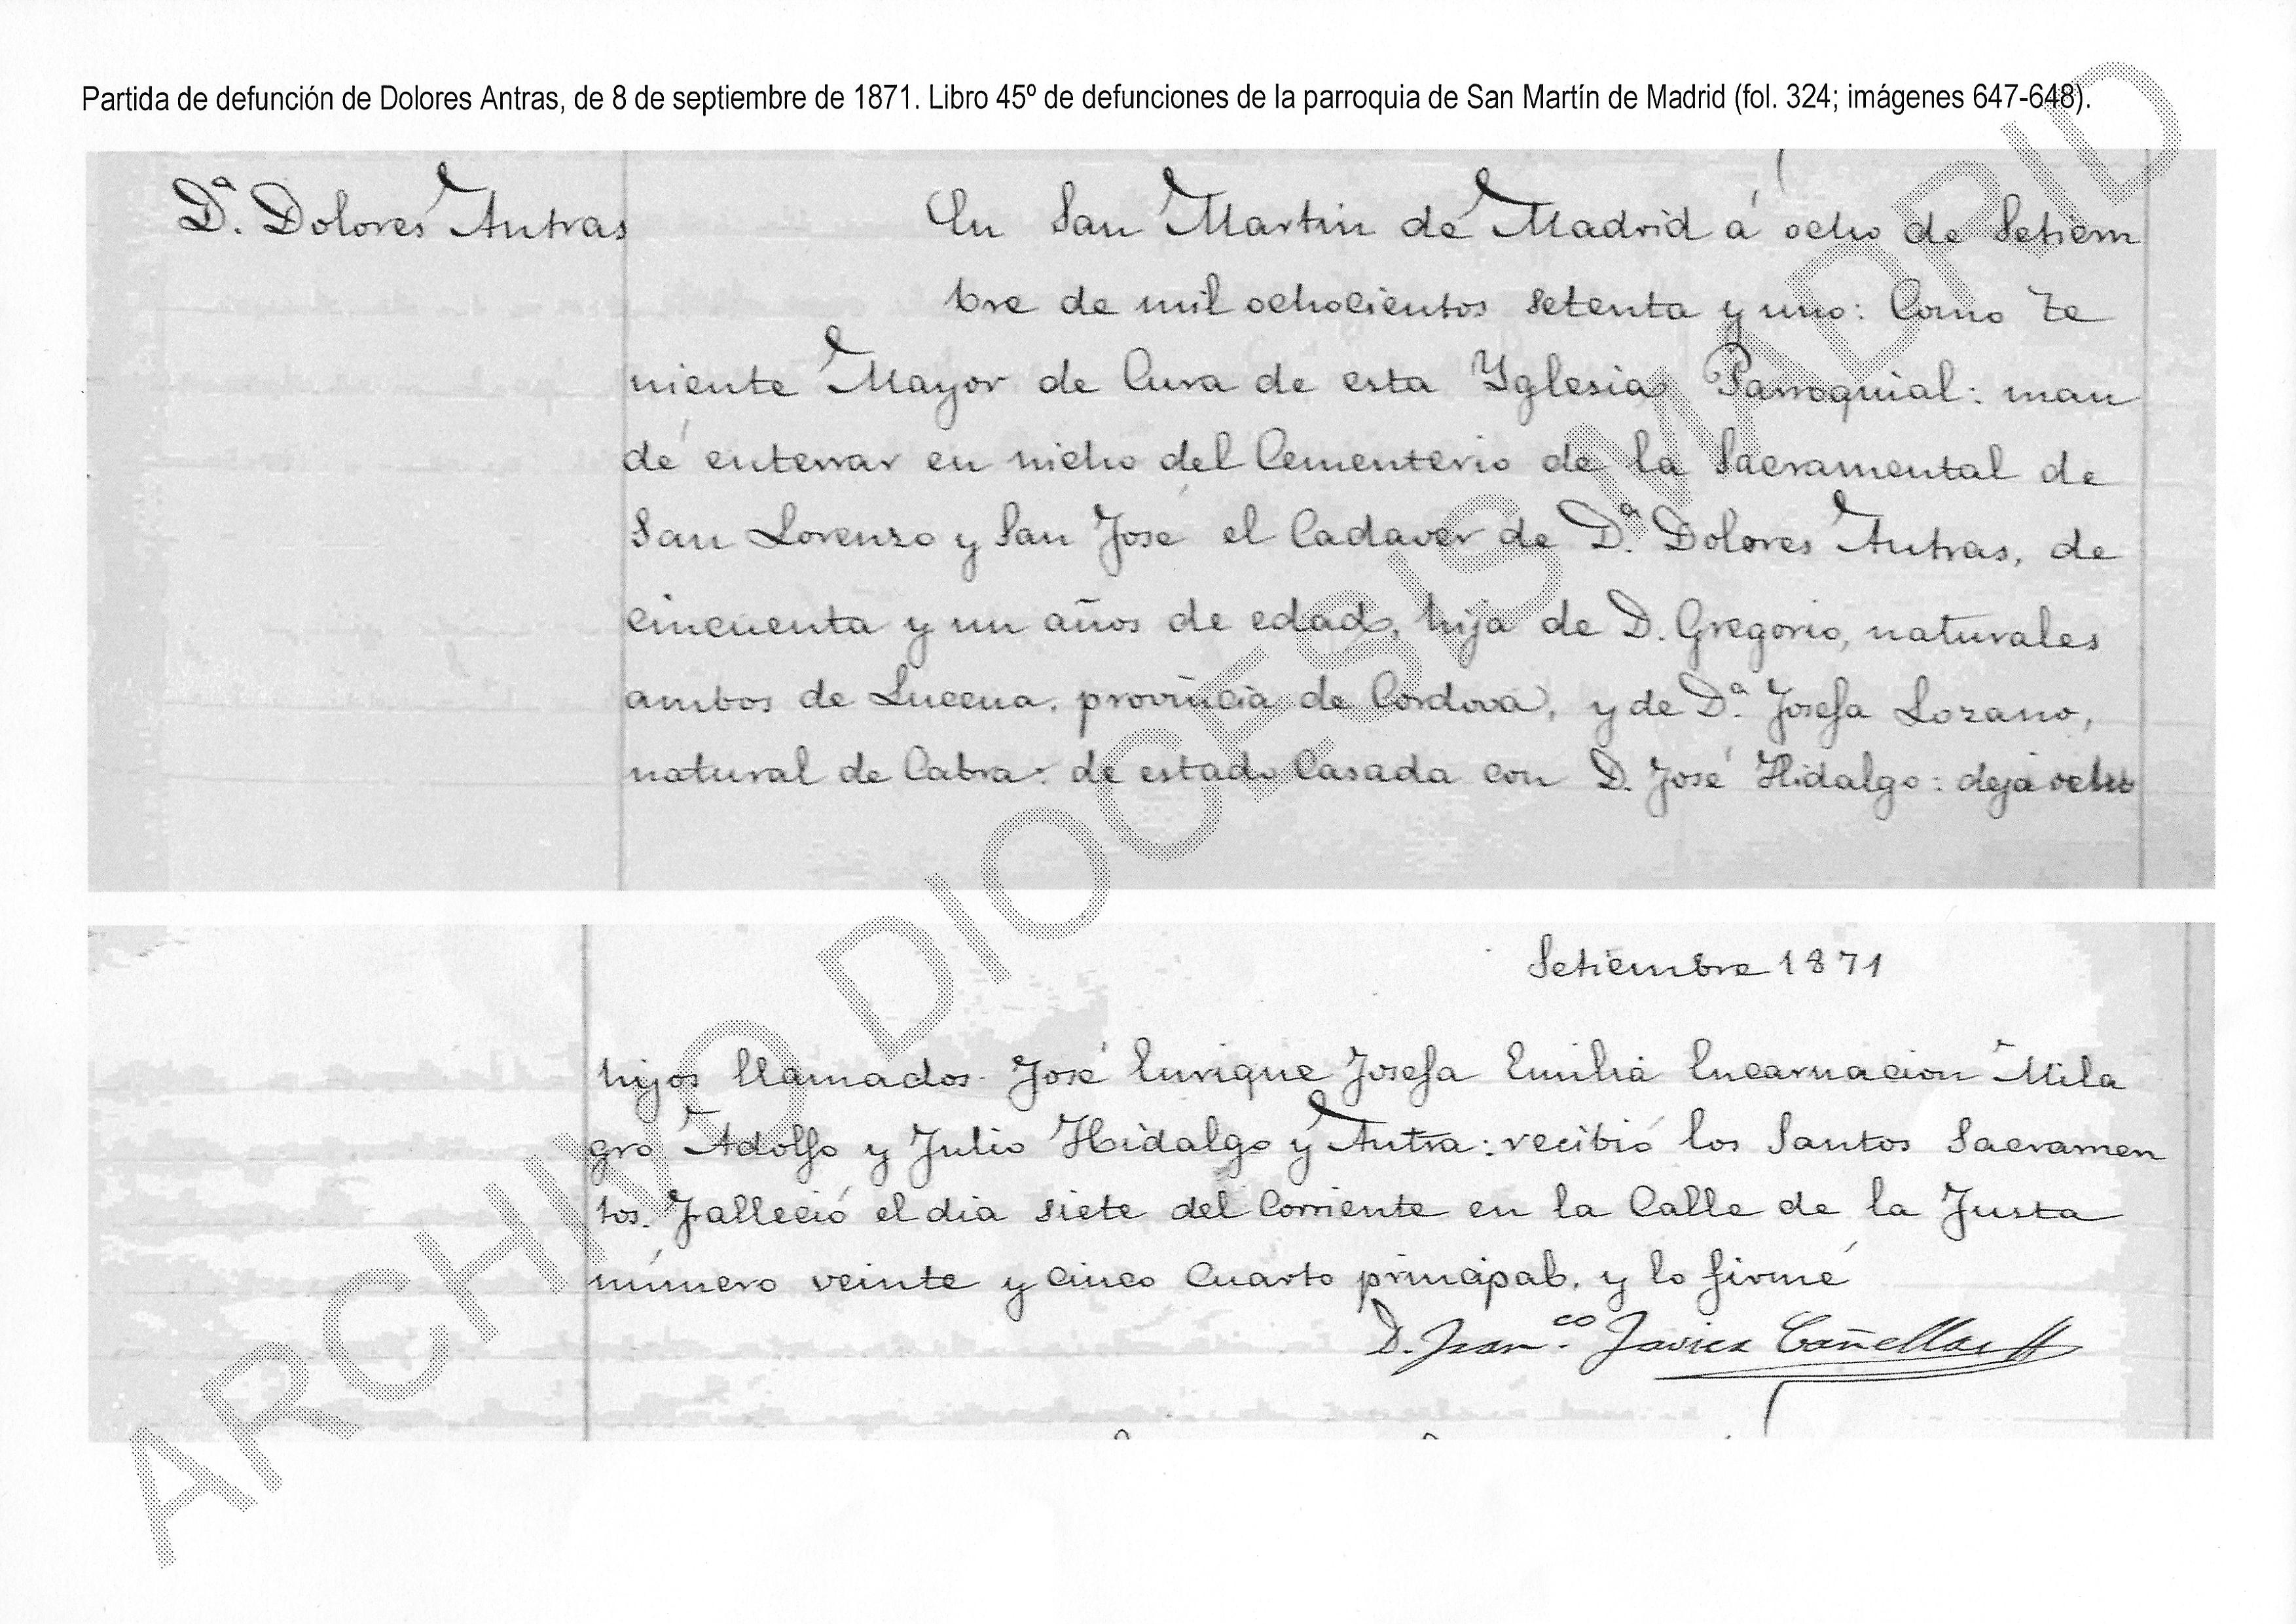 Partida de defunción de Dolores Antras, de 8 de septiembre de 1871. Libro 45º de defunciones de la parroquia de San Martín de Madrid (fol. 324; imágenes 647-648).
Dª. Dolores Antras
En San Martin de Madrid á ocho de Setiem
bre de mil ochocientos setenta y uno: Como Te
niente Mayor de Cura de esta Yglesia Parroquial: man
dé enterrar en nicho del Cementerio de la Sacramental de
San Lorenzo y San José el Cadaver de Dª. Dolores Antras, de
cincuenta y un años de edad, hija de D. Gregorio, naturales
ambos de Lucena, provincia de Cordova, y de Dª. Josefa Lozano,
natural de Cabra: de estado Casada con D. José Hidalgo: deja ocho
Setiembre 1871
hijos llamados José Enrique Josefa Emilia Encarnacion Mila
gro Adolfo y Julio Hidalgo y Antra: recibió los Santos Sacramen
tos. Falleció el dia siete del Corriente en la Calle de la Justa
número veinte y cinco Cuarto principal, y lo firmé
D. Franco. Javier Cañellas
ARCHIVO DIOCESIS MADRID